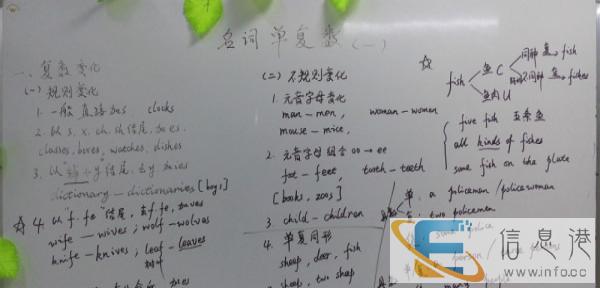 名词单复数(一)
一、复数变化
(一) 规则变化
1. 一般直接加s clocks
2. 以s, x, ch, sh结尾, 加es.
classes, boxes, watches, dishes
3. 以"辅+y"结尾, 去y加ies
dictionary—dictionaries [boys]
☆ 4. 以"f, fe"结尾, 去f, fe, 加ves
wife—wives; wolf—wolves
knife—knives; leaf—leaves
树叶
(二) 不规则变化
1. 元音字母变化
man—men, woman—women
mouse—mice,
2. 元音字母组合 oo → ee
foot—feet, tooth—teeth
[books, zoos]
3. child—children
4. 单复同形
sheep, deer, fish
sheep, two sheep
☆
fish
鱼 C
同种 复 fish
不同种 复 fishes
鱼肉 U
five fish 五条鱼
all kinds of fishes
some fish on the plate
单: a policeman / policewoman
: two policemen
police
person
people
信息港
www.info.cc